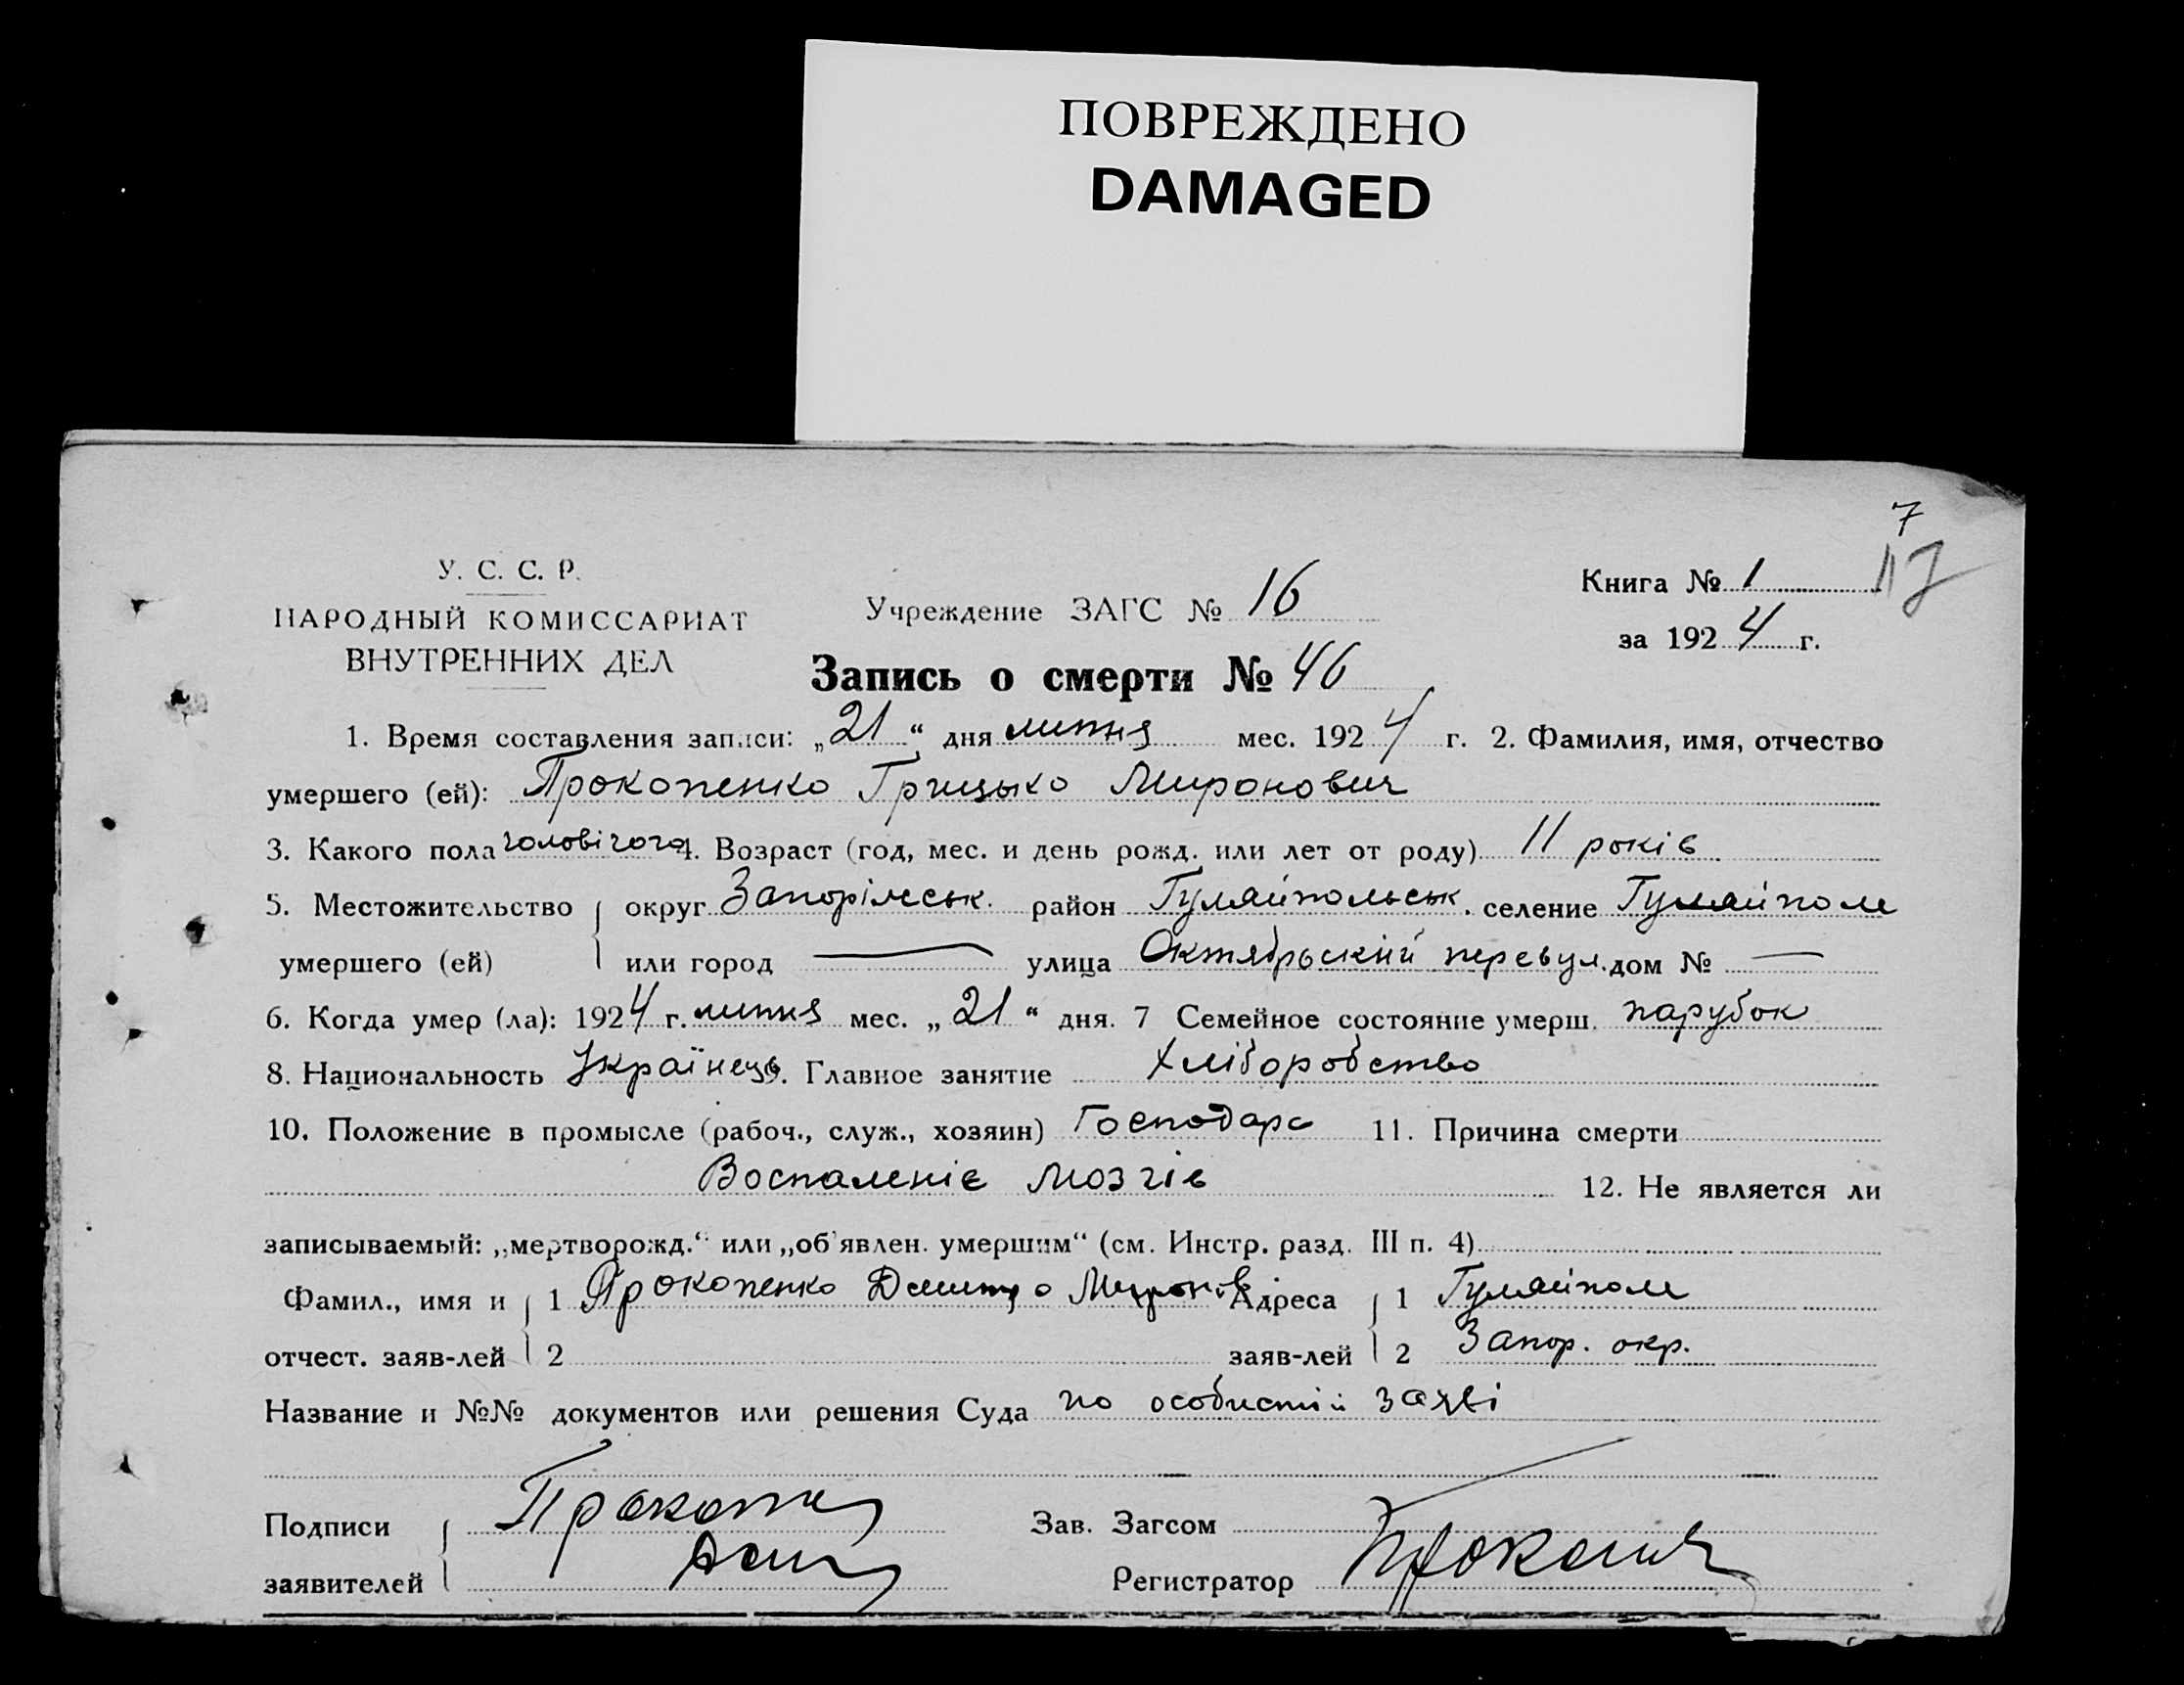 ПОВРЕЖДЕНО
DAMAGED
7
17
У. С. С. Р.
НАРОДНЫЙ КОМИССАРИАТ
ВНУТРЕННИХ ДЕЛ
Учреждение ЗАГС № 16
Книга № 1
за 1924 г.
Запись о смерти № 46
1. Время составления записи: „21“ дня липня мес. 1924 г. 2. Фамилия, имя, отчество
умершего (ей): Прокопенко Грицько Миронович
3. Какого пола чоловічого 4. Возраст (год, мес. и день рожд. или лет от роду) 11 років
5. Местожительство округ Запоріжськ. район Гуляйпольськ. селение Гуляйполе
умершего (ей) или город — улица Октябрьский перевул. дом № —
6. Когда умер (ла): 1924 г. липня мес. „21“ дня. 7 Семейное состояние умерш. парубок
8. Национальность Українець 9. Главное занятие Хліборобство
10. Положение в промысле (рабоч., служ., хозяин) Господарь 11. Причина смерти
Воспаленіе мозгів 12. Не является ли
записываемый: „мертворожд.“ или „об'явлен. умершим“ (см. Инстр. разд. III п. 4)
Фамил., имя и 1 Прокопенко Дмитро Миронов Адреса 1 Гуляйполе
отчест. заяв-лей 2 заяв-лей 2 Запор. окр.
Название и №№ документов или решения Суда по особистій заяві
Подписи Прокопен Зав. Загсом
заявителей Регистратор